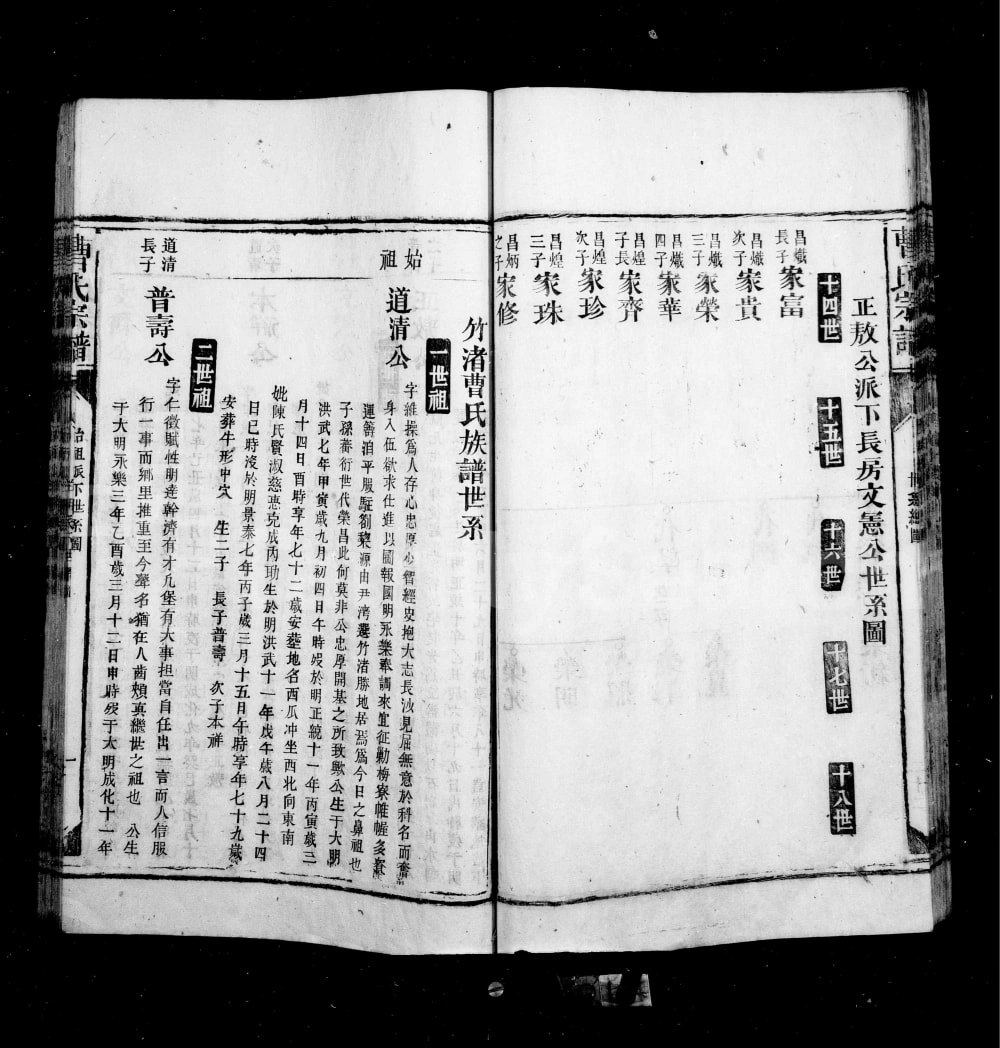 曹氏宗譜
世系總圖
正敖公派下長房文憲公世系圖
十四世
十五世
十六世
十七世
十八世
昌熾長子 家富
昌熾次子 家貴
昌熾三子 家榮
昌熾四子 家華
昌煌長子 家齊
昌煌次子 家珍
昌煌三子 家珠
昌炳之子 家修
竹渚曹氏族譜世系
一世祖
始祖 道清公
字維操為人存心忠厚少習經史抱大志長決見屈無意於科名而奮
身入伍欲求仕進以圖報國明永樂奉調來宜征勦梅寮帷幄多
運籌洎平服駐劉黎源由尹灣遷竹渚勝地居焉為今日之鼻祖也
子孫蕃衍世代榮昌此何莫非公忠厚開基之所致歟公生于大明
洪武七年甲寅歲九月初四日午時歿於明正統十一年丙寅歲三
月十四日酉時享年七十二歲安塟地名西爪冲坐西北向東南
妣陳氏賢淑慈惠克成內助生於明洪武十一年戊午歲八月二十四
日巳時歿於明景泰七年丙子歲三月十五日午時享年七十九歲
安葬牛形中穴 生二子 長子普壽 次子本祥
二世祖
道清長子 普壽公
字仁徵賦性明達幹濟有才凡堡有大事担當自任出一言而人信服
行一事而鄉里推重至今聲名猶在人齒頰真繼世之祖也 公生
于大明永樂三年乙酉歲三月十二日申時歿于大明成化十一年
曹氏宗譜
始祖派下世系圖
一